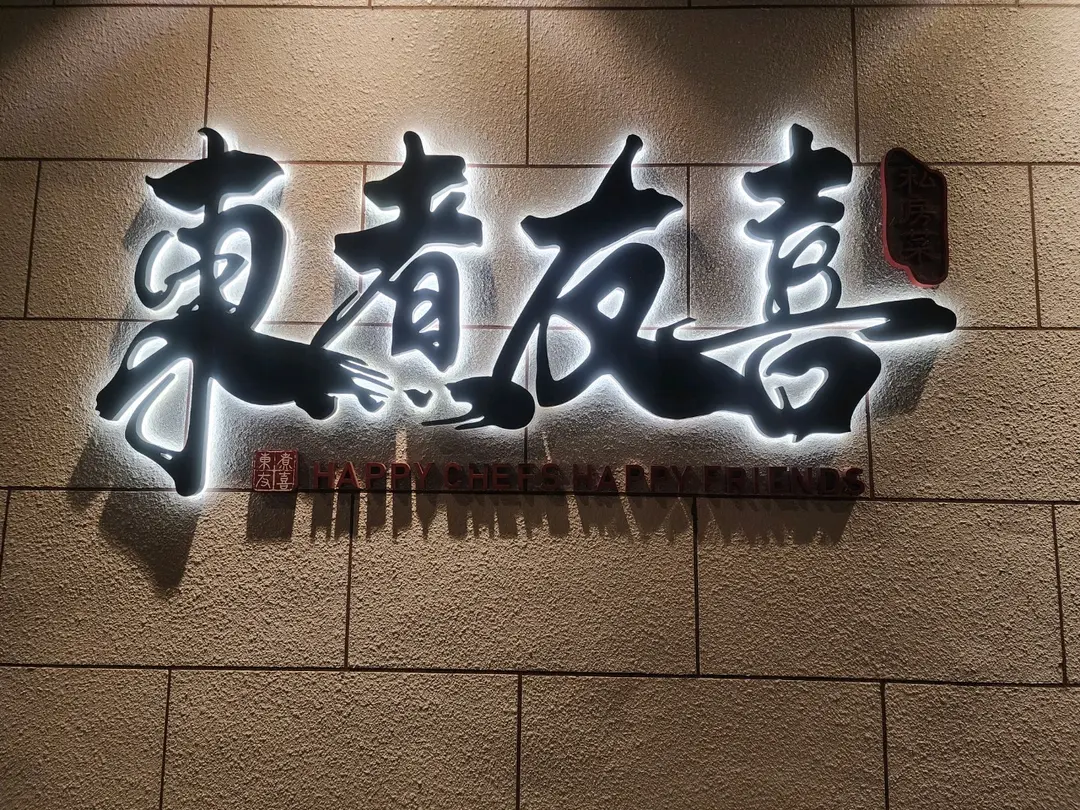 東煮友喜
私房菜
東煮
友喜
HAPPY CHEFS HAPPY FRIENDS